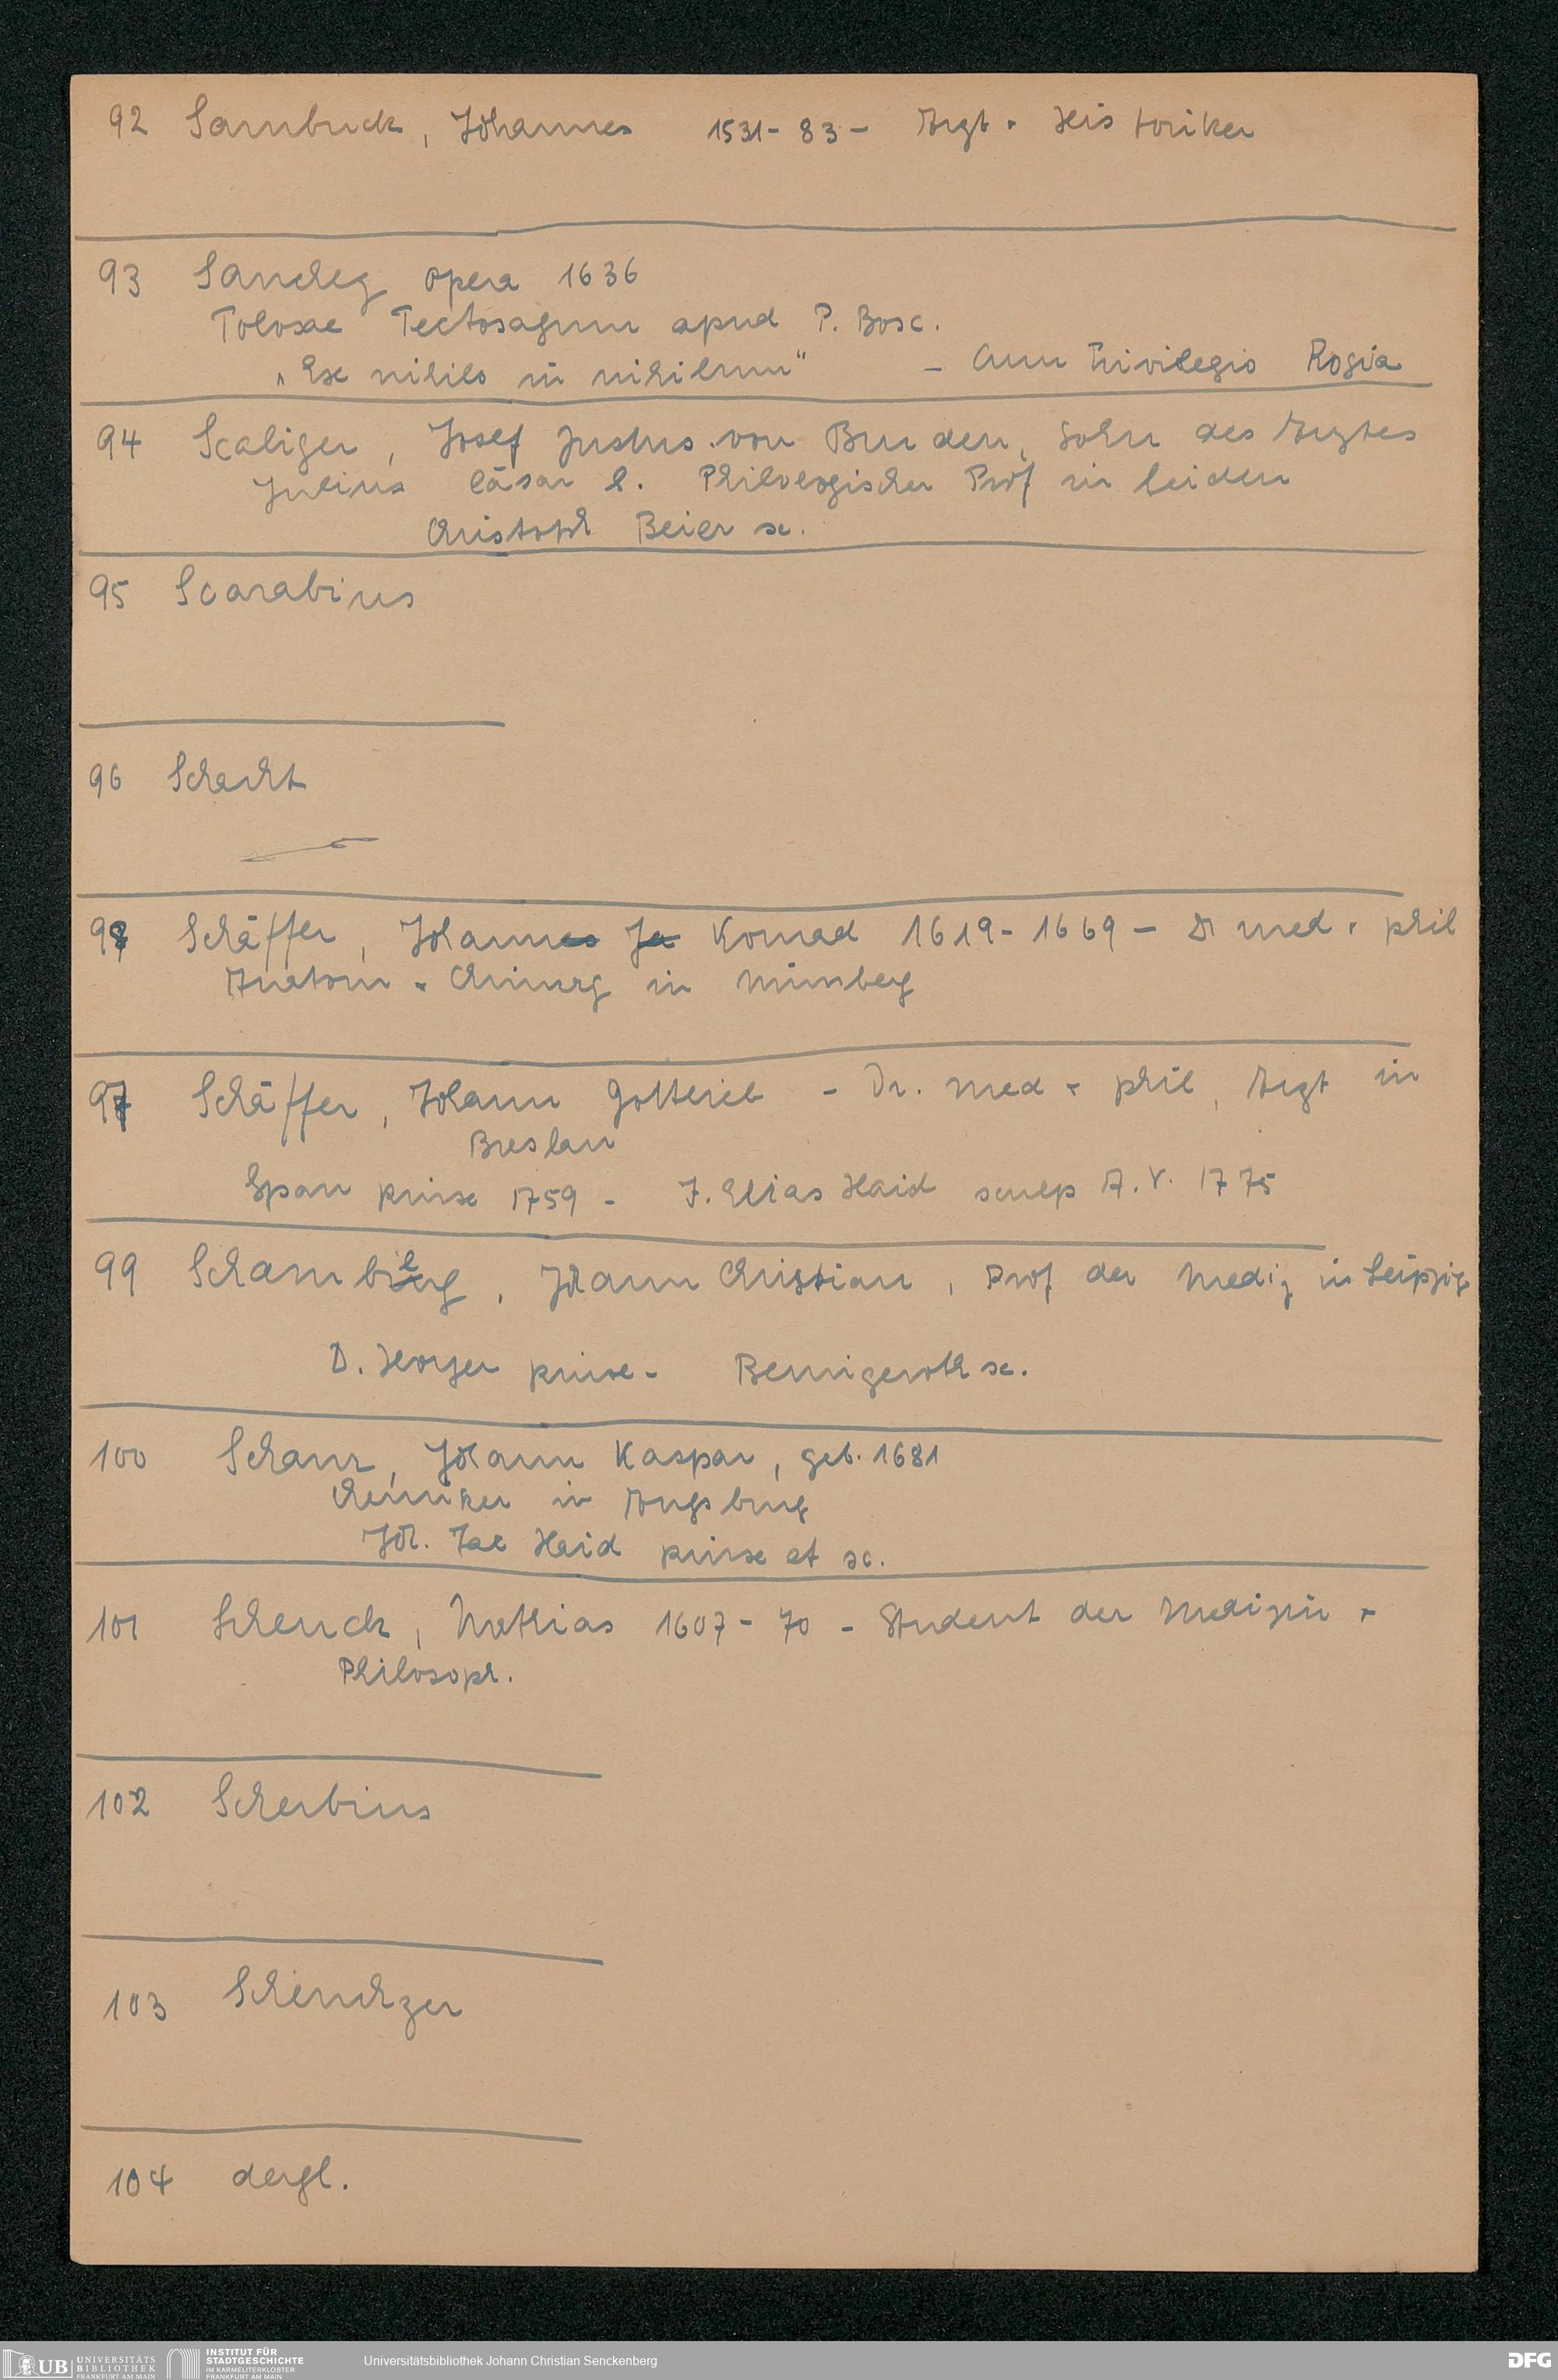 92 Sambuck, Johannes 1531-83- Arzt + Historiker
93 Sanchez opera 1636
Tolosae Tectosagum apud P. Bosc.
„Exe nihilo in nihilum" - Cum Privilegio Rogia
94 Scaliger, Josef Justus von Burden, Sohn des Arztes
Julius Cäsar S. Philologischer Prof in Leiden
Christoph Beier sc.
95 Scarabius
96 Schacht
98 Schäffer, Johannes Ja Konrad 1619-1669 - Dr med + phil
Anatom + Chirurg in Nürnberg
97 Schäffer, Johann Gottlieb - Dr. med + phil, Arzt in
Breslau
Span pinxe 1759 - J. Elias Haid sculp A.V. 1775
99 Schamberg, Johann Christian, Prof der Mediz in Leipzig
D. Hoyer pinxe - Bernigeroth sc.
100 Schanz, Johann Kaspar, geb. 1681
Chemiker in Augsburg
Joh. Jac Haid pinxe et sc.
101 Schenck, Mathias 1607-70 - Student der Medizin +
Philosoph.
102 Scherbius
103 Scheuchzer
104 dergl.
UB UNIVERSITÄTS
BIBLIOTHEK
FRANKFURT AM MAIN
INSTITUT FÜR
STADTGESCHICHTE
IM KARMELITERKLOSTER
FRANKFURT AM MAIN
Universitätsbibliothek Johann Christian Senckenberg
DFG